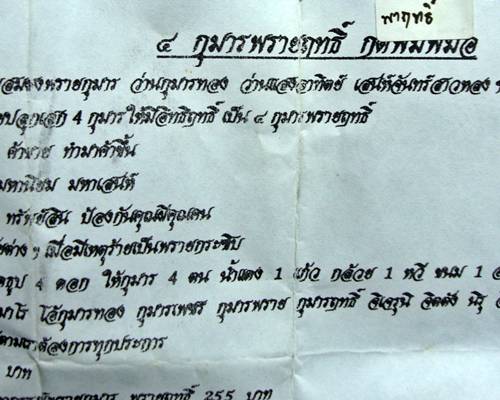 พายุฤทธิ์
๔ กุมารพรายฤทธิ์ กดพมพมอ
ผสมผงพรายกุมาร ว่านกุมารทอง ว่านแสงอาทิตย์ เสน่ห์จันทร์สาวทอง
ปลุกเสก 4 กุมารให้มีอิทธิฤทธิ์ เป็น ๔ กุมารพรายฤทธิ์
ค้าขาย ทำมาค้าขึ้น
มหานิยม มหาเสน่ห์
ทรัพย์สิน ป้องกันคุณผีคุณคน
ต่าง ๆ เมื่อมีเหตุร้ายเป็นพรายกระซิบ
ธูป 4 ดอก ให้กุมาร 4 ตน น้ำแดง 1 แก้ว กล้วย 1 หวี ขนม 1
โอ้กุมารทอง กุมารเพชร กุมารพราย กุมารฤทธิ์ จิเจรุนิ จิตตัง นิรุ
ตามเราต้องการทุกประการ
บาท
พรายกุมาร พรายฤทธิ์ 255 บาท